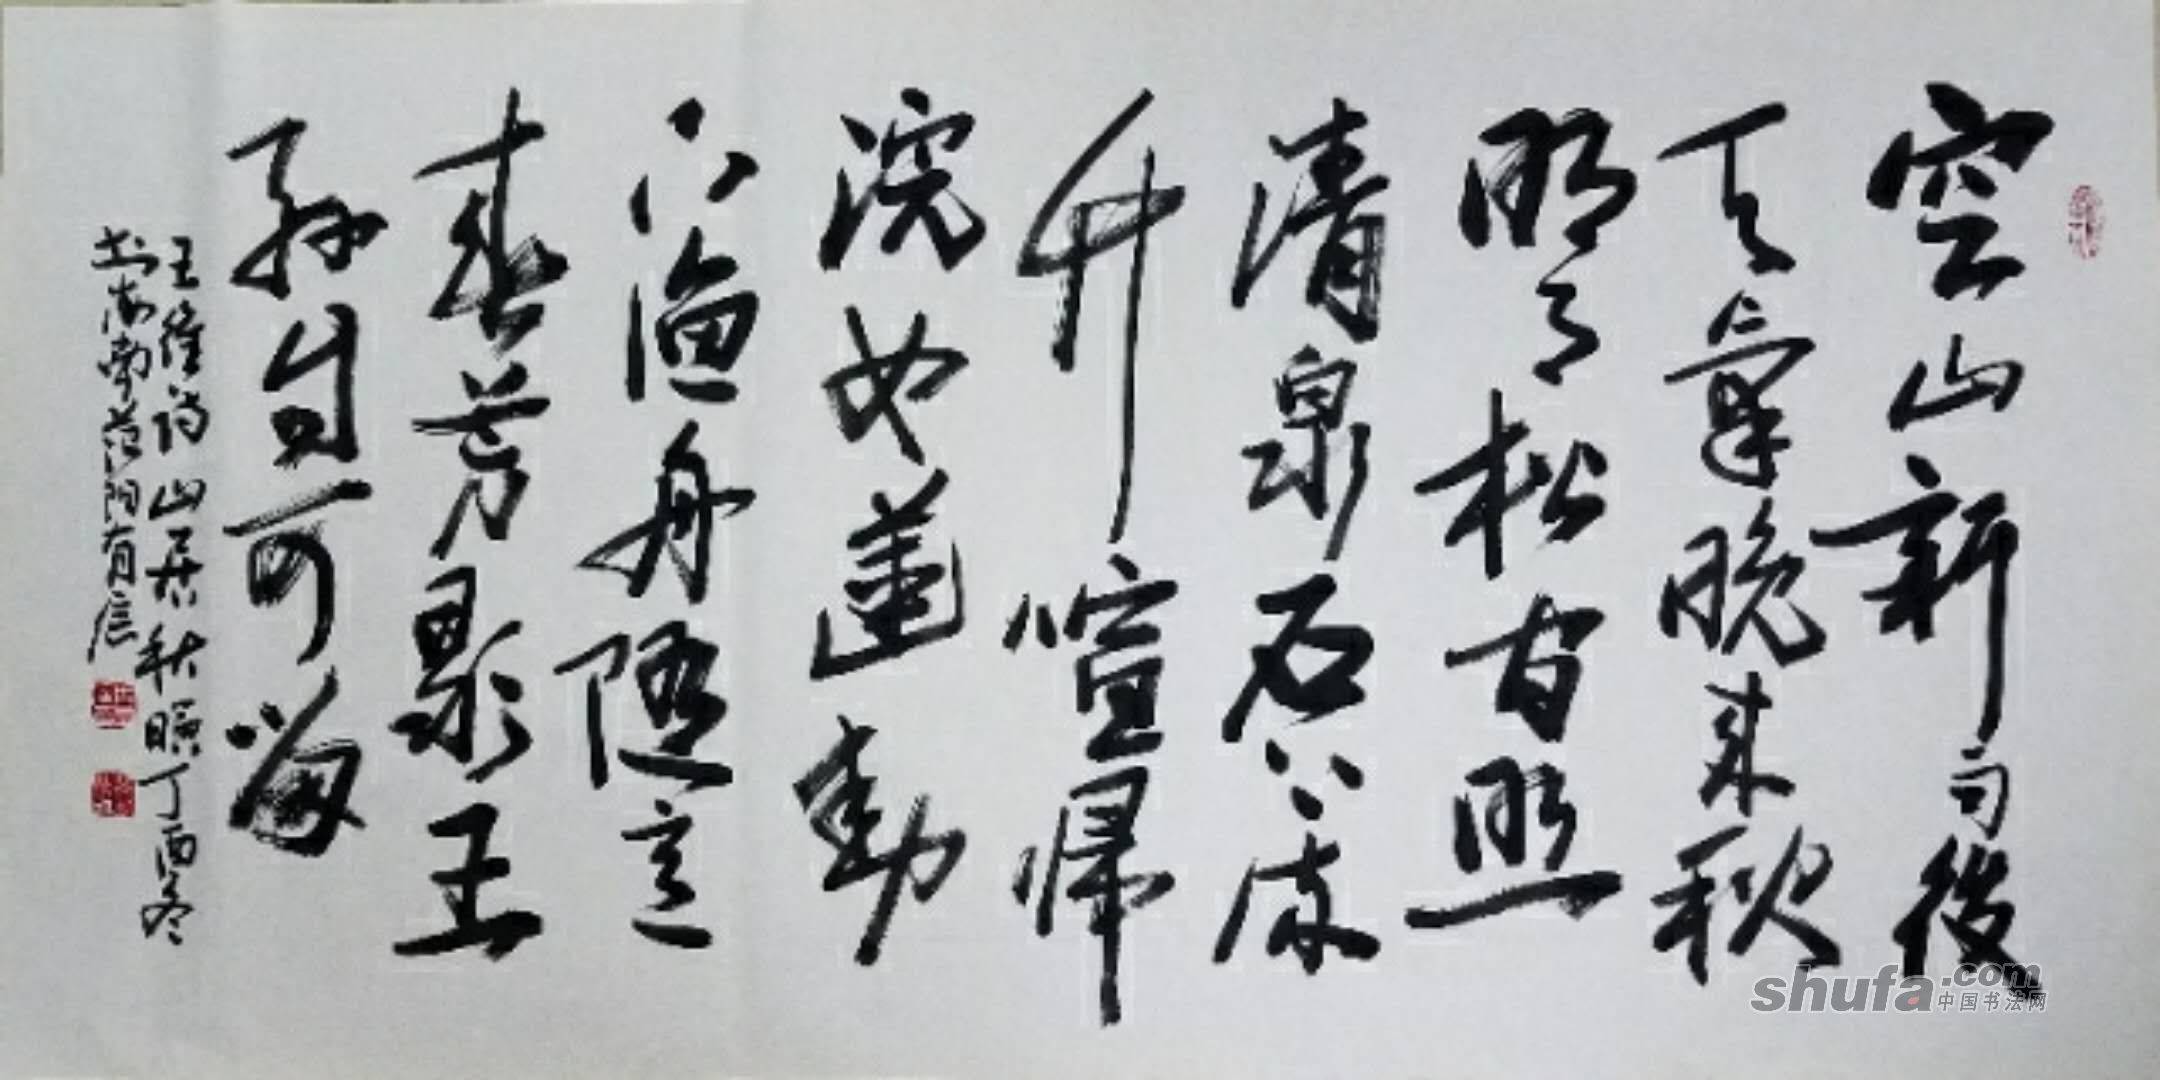 空山新雨後
天氣晚来秋
明月松间照
清泉石上流
竹喧歸
浣女蓮動
下漁舟隨意
春芳歇王
孫自可留
王維詩山居秋暝丁酉冬
书 南 范阳有
shufa.com
中国书法网